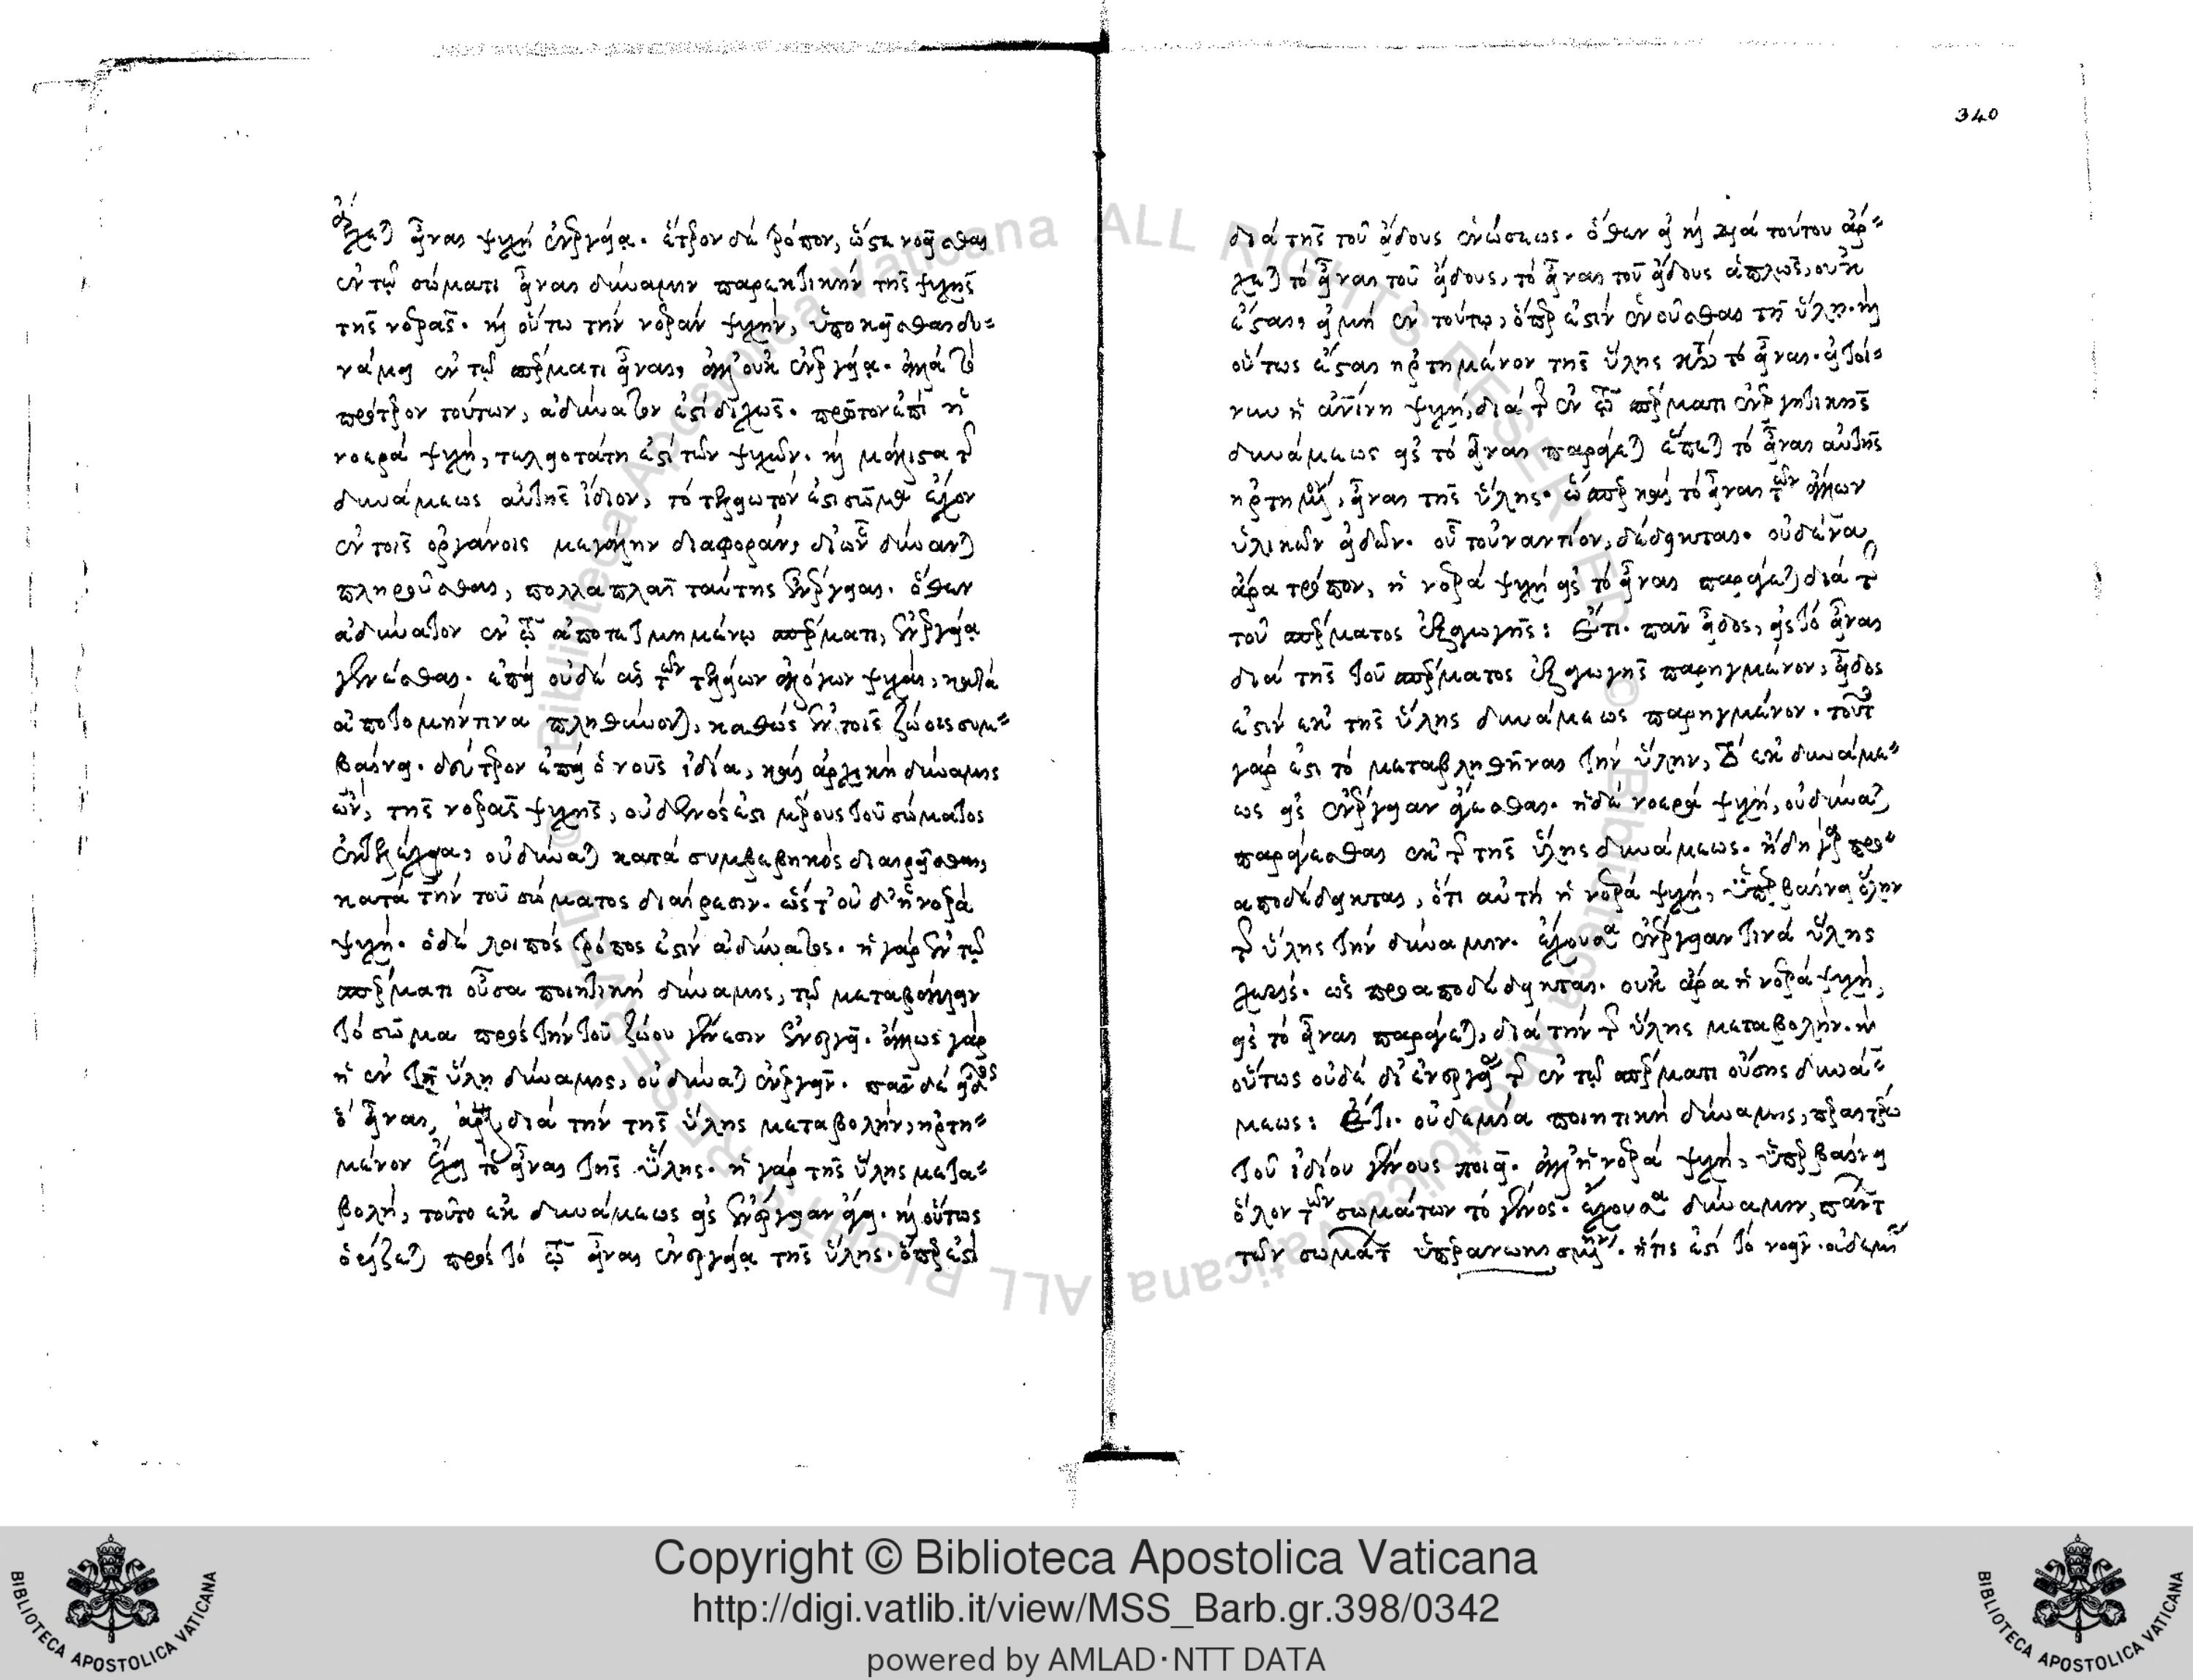 340
ἄρχεται εἶναι ψυχὴ ἐνεργείᾳ. ἕτερον δὲ τρόπον, ὥστε νοεῖσθαι
ἐν τῷ σώματι εἶναι δύναμιν παρεκτικὴν τῆς ψυχῆς
τῆς νοερᾶς. καὶ οὕτω τὴν νοερὰν ψυχὴν,
νάμει ἐν τῷ σπέρματι εἶναι, ἀλλ' οὐκ ἐνεργείᾳ. ἀλλὰ τὸ
πρότερον τούτων, ἀδύνατόν ἐστι διχῶς. πρῶτον ἐπεὶ ἡ
νοερὰ ψυχὴ, τελειοτάτη ἐστὶ τῶν ψυχῶν. καὶ μάλιστα τῆς
δυνάμεως αὐτῆς ἴδιον, τὸ ἐστι σῶμα ἔχον
ἐν τοῖς ὀργάνοις μεγάλην διαφορὰν, δι' ὧν δύνανται
πληροῦσθαι, πολλαπλαῖ ταύτης ἐνέργειαι. ὅθεν
ἀδύνατον ἐν τῷ ἀποτετμημένῳ σπέρματι, ἐνεργείᾳ
γενέσθαι. ἐπεὶ οὐδὲ αἱ τῶν τελείων ἀλόγων ψυχαὶ, κατὰ
ἀποτομήν τινα πληθύνονται, καθὼς ἐν τοῖς ζώοις συμ-
βαίνει. δεύτερον ἐπεὶ ὁ νοῦς ἰδία, καὶ ἀρχικὴ δύναμις
ὢν, τῆς νοερᾶς ψυχῆς, οὐδενός ἐστι μέρους τοῦ σώματος
ἐντελέχεια, οὐ δύναται κατὰ συμβεβηκὸς διαιρεῖσθαι,
κατὰ τὴν τοῦ σώματος διαίρεσιν. ὥστ' οὐδ' ἡ νοερὰ
ψυχή. ὁ δὲ λοιπὸς τρόπος ἐστὶν ἀδύνατος. ἡ γὰρ ἐν τῷ
σπέρματι οὖσα ποιητικὴ δύναμις, τῷ μεταβάλλειν
τὸ σῶμα πρὸς τὴν τοῦ ζώου γένεσιν ἐνεργεῖ. ἄλλως γὰρ
ἡ ἐν τῇ ὕλῃ δύναμις, οὐ δύναται ἐνεργεῖν. πᾶν δὲ εἶδος
ὃ εἶναι, ἄρχεται διὰ τὴν τῆς ὕλης μεταβολὴν, ἠρτη-
μένον ἔχει τὸ εἶναι τῆς ὕλης. ἡ γὰρ τῆς ὕλης μετα-
βολὴ, τοῦτο ἐκ δυνάμεως εἰς ἐνέργειαν ἄγει. καὶ οὕτως
ὁρίζεται πρὸς τὸ εἶναι ἐνεργείᾳ τῆς ὕλης. ὅπερ ἐστὶ
διὰ τῆς τοῦ εἴδους ἑνώσεως. ὅθεν εἰ καὶ διὰ τούτου ἄρ-
χεται τὸ εἶναι τοῦ εἴδους, τὸ εἶναι τοῦ εἴδους ἁπλῶς, οὐκ
ἔσται, εἰ μὴ ἐν τούτῳ, ὅπερ ἐστὶν ἑνοῦσθαι τῇ ὕλῃ. καὶ
οὕτως ἔσται ἠρτημένον τῆς ὕλης κατὰ τὸ εἶναι. εἰ τοί-
νυν ἡ ἀνθρωπίνη ψυχὴ, διὰ τῆς ἐν τῷ σπέρματι ἐνεργητικῆς
δυνάμεως εἰς τὸ εἶναι παράγεται ἕπεται τὸ εἶναι αὐτῆς
ἠρτημένον, εἶναι τῆς ὕλης. ὥσπερ καὶ τὸ εἶναι τῶν ἄλλων
ὑλικῶν εἰδῶν. οὗ τοὐναντίον, δέδεικται. οὐδένα
ἄρα τρόπον, ἡ νοερὰ ψυχὴ εἰς τὸ εἶναι παράγεται διὰ τῆς
τοῦ σπέρματος ἐξαγωγῆς: Ἔτι. πᾶν εἶδος, εἰς τὸ εἶναι
διὰ τῆς τοῦ σπέρματος ἐξαγωγῆς παρηγμένον, εἶδος
ἐστὶν ἐκ τῆς ὕλης δυνάμεως παρηγμένον. τοῦτο
γάρ ἐστι τὸ μεταβληθῆναι τὴν ὕλην, τὸ ἐκ δυνάμε-
ως εἰς ἐνέργειαν ἄγεσθαι. ἡ δὲ νοερὰ ψυχὴ, οὐ δύναται
παράγεσθαι ἐκ τῆς τῆς ὕλης δυνάμεως. ἤδη γὰρ προ-
αποδέδεικται, ὅτι αὐτὴ ἡ νοερὰ ψυχὴ, ὑπερβαίνει ὅλην
τῆς ὕλης τὴν δύναμιν. ἔχουσα ἐνέργειάν τινα ὕλης
χωρίς. ὡς προαποδέδεικται. οὐκ ἄρα ἡ νοερὰ ψυχὴ,
εἰς τὸ εἶναι παράγεται, διὰ τὴν τῆς ὕλης μεταβολήν. καὶ
οὕτως οὐδὲ δι' ἐνεργείας τῆς ἐν τῷ σπέρματι οὔσης δυνά-
μεως: Ἔτι. οὐδεμία ποιητικὴ δύναμις, περαιτέρω
τοῦ ἰδίου γένους ποιεῖ. ἀλλ' ἡ νοερὰ ψυχὴ, ὑπερβαίνει
ὅλον τῶν σωμάτων τὸ γένος. ἔχουσα δύναμιν, πάντων
τῶν σωμάτων . ἥτις ἐστὶ τὸ νοεῖν. οὐδεμία